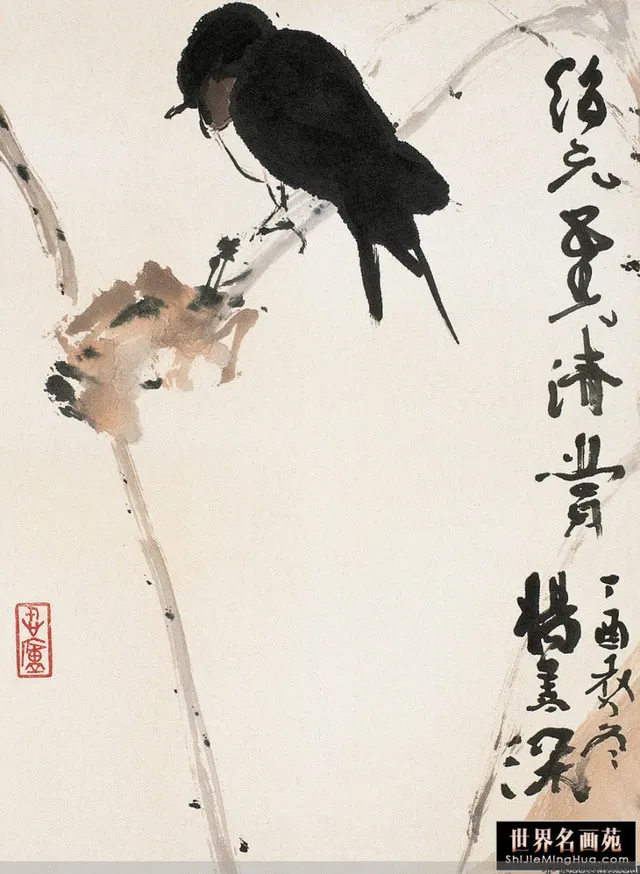 紹元清賞
丁酉冬
楊善深
世界名画苑
ShiJieMingHua.Com